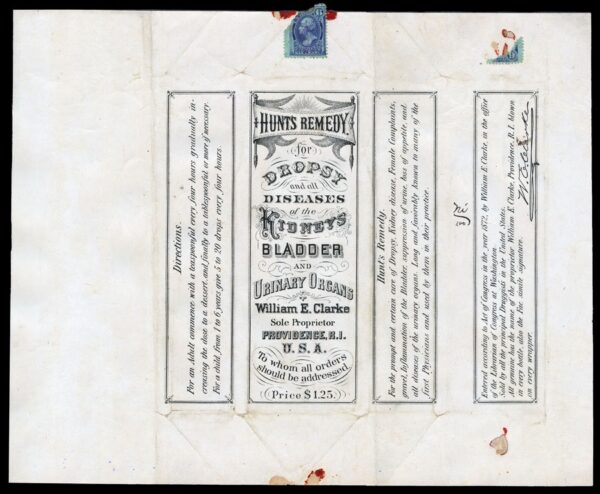 Directions.
For an Adult commence with a teaspoonful every four hours gradually in-
creasing the dose to a dessert, and finally to a tablespoonful or more if necessary.
For a child, from 1 to 6 years, give 5 to 20 drops every four hours.
HUNTS REMEDY.
for
DROPSY
and all
DISEASES
of the
KIDNEYS
BLADDER
AND
URINARY ORGANS
William E. Clarke
Sole Proprietor
PROVIDENCE, R.I.
U.S.A.
To whom all orders
should be addressed.
Price $1.25.
Hunt's Remedy.
For the prompt and certain cure of Dropsy, Kidney disease, Female Complaints,
gravel, Inflammation of the Bladder, suppression of urine, loss of appetite, and
all diseases of the urinary organs. Long and favorably known to many of the
first Physicians and used by them in their practice.
Entered according to Act of Congress in the year 1872, by William E. Clarke, in the office
of the Librarian of Congress at Washington.
Sold by all the principal Druggists in the United States.
All genuine has the name of the proprietor William E. Clarke, Providence, R.I. blown
in every bottle, also the Fac simile signature,
on every wrapper.
W. E. Clarke